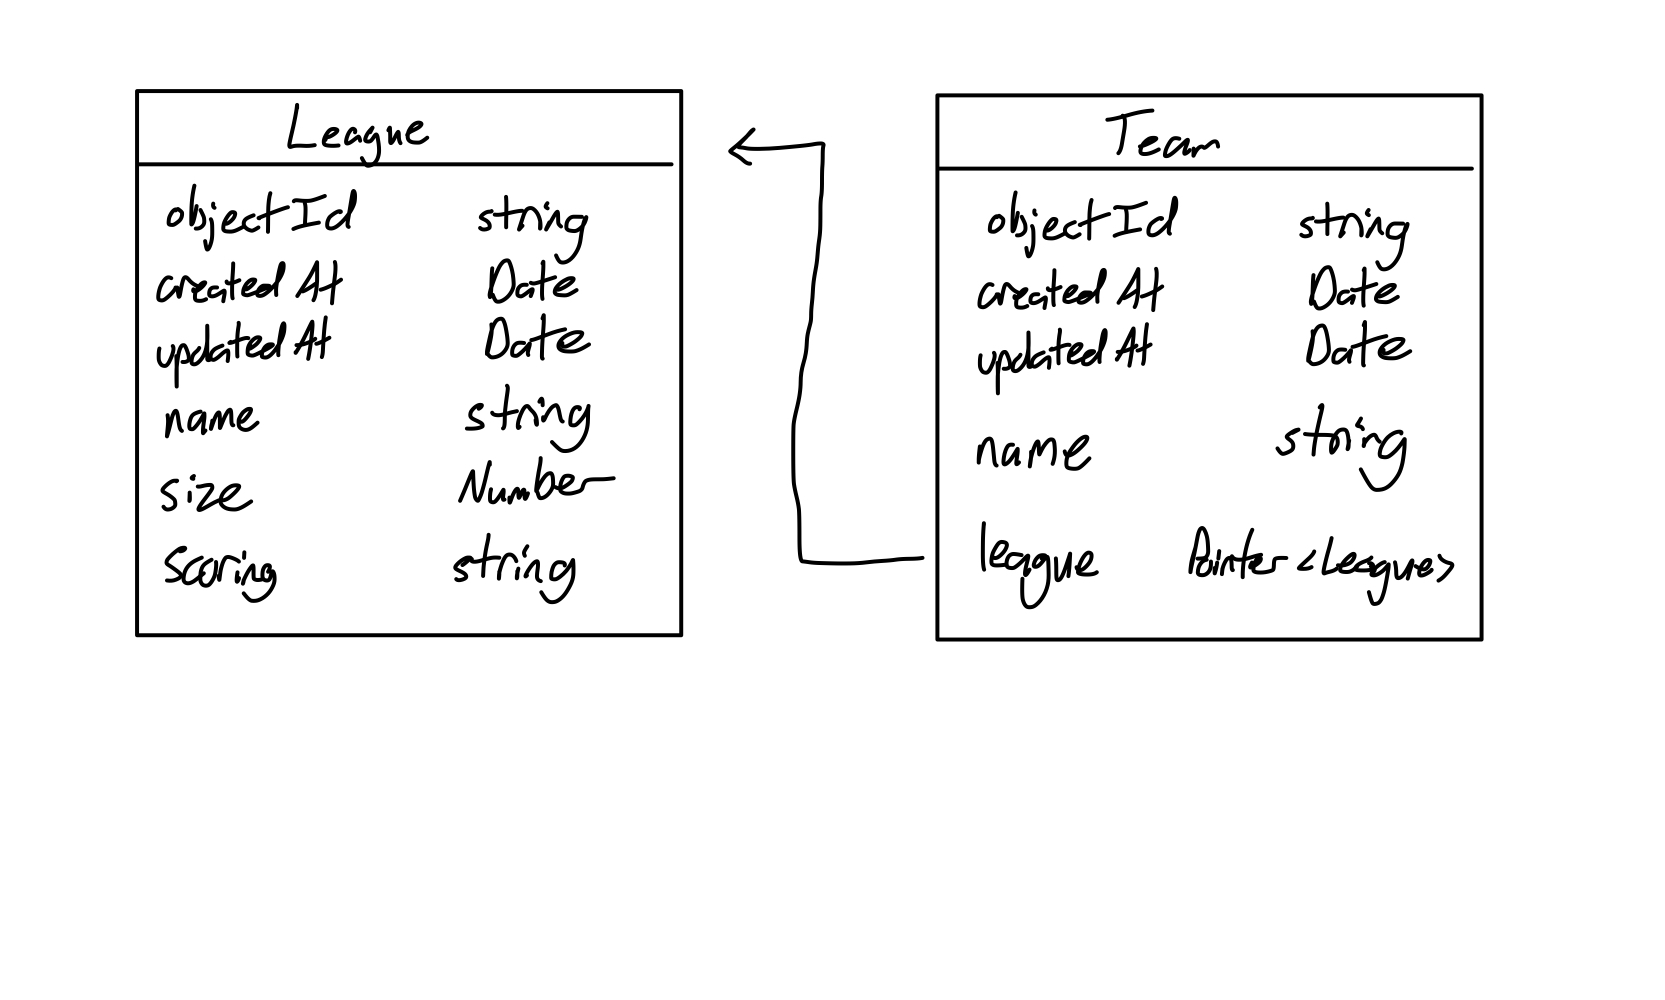 League
objectId string
createdAt Date
updatedAt Date
name string
size Number
scoring string
Team
objectId string
createdAt Date
updatedAt Date
name string
league Pointer <League>